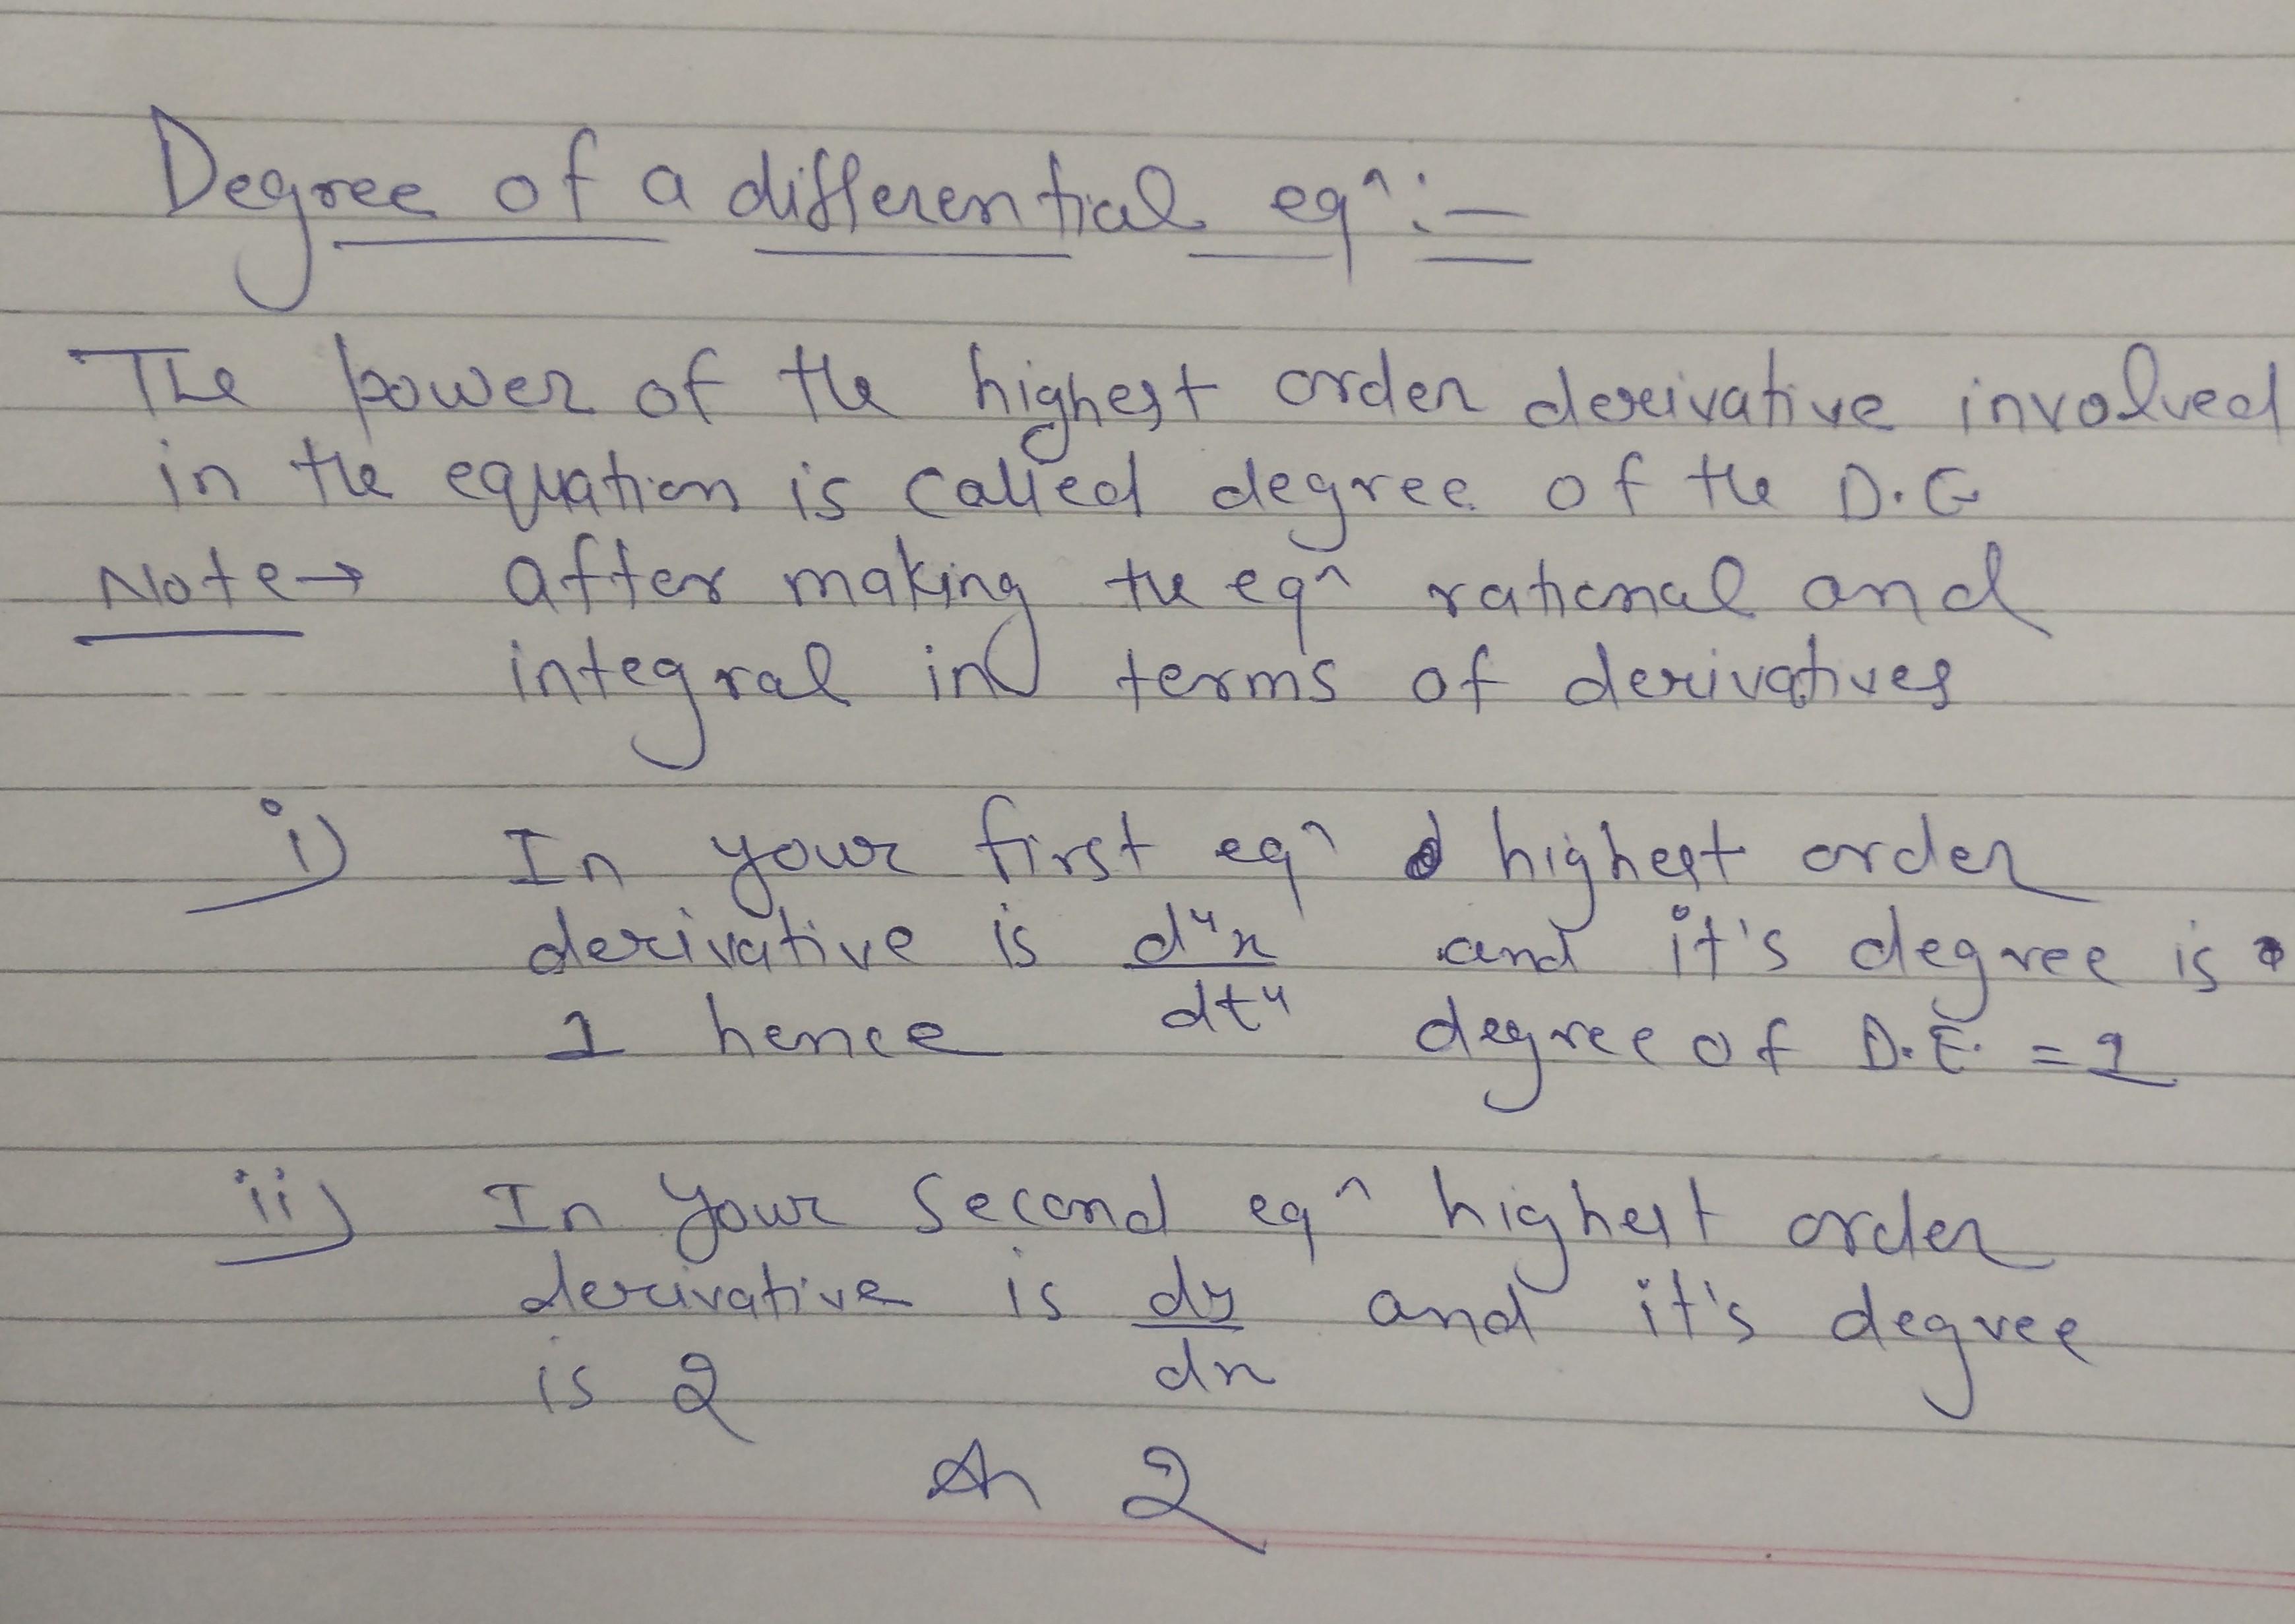 Degree of a differential eqⁿ :-
The power of the highest order derivative involved
in the equation is called degree of the D.E
Note → after making the eqⁿ rational and
integral in terms of derivatives
i) In your first eqⁿ highest order
derivative is d⁴x/dt⁴ and it's degree is
1 hence degree of D.E. = 1
ii) In your second eqⁿ highest order
derivative is dy/dx and it's degree
is 2
An 2